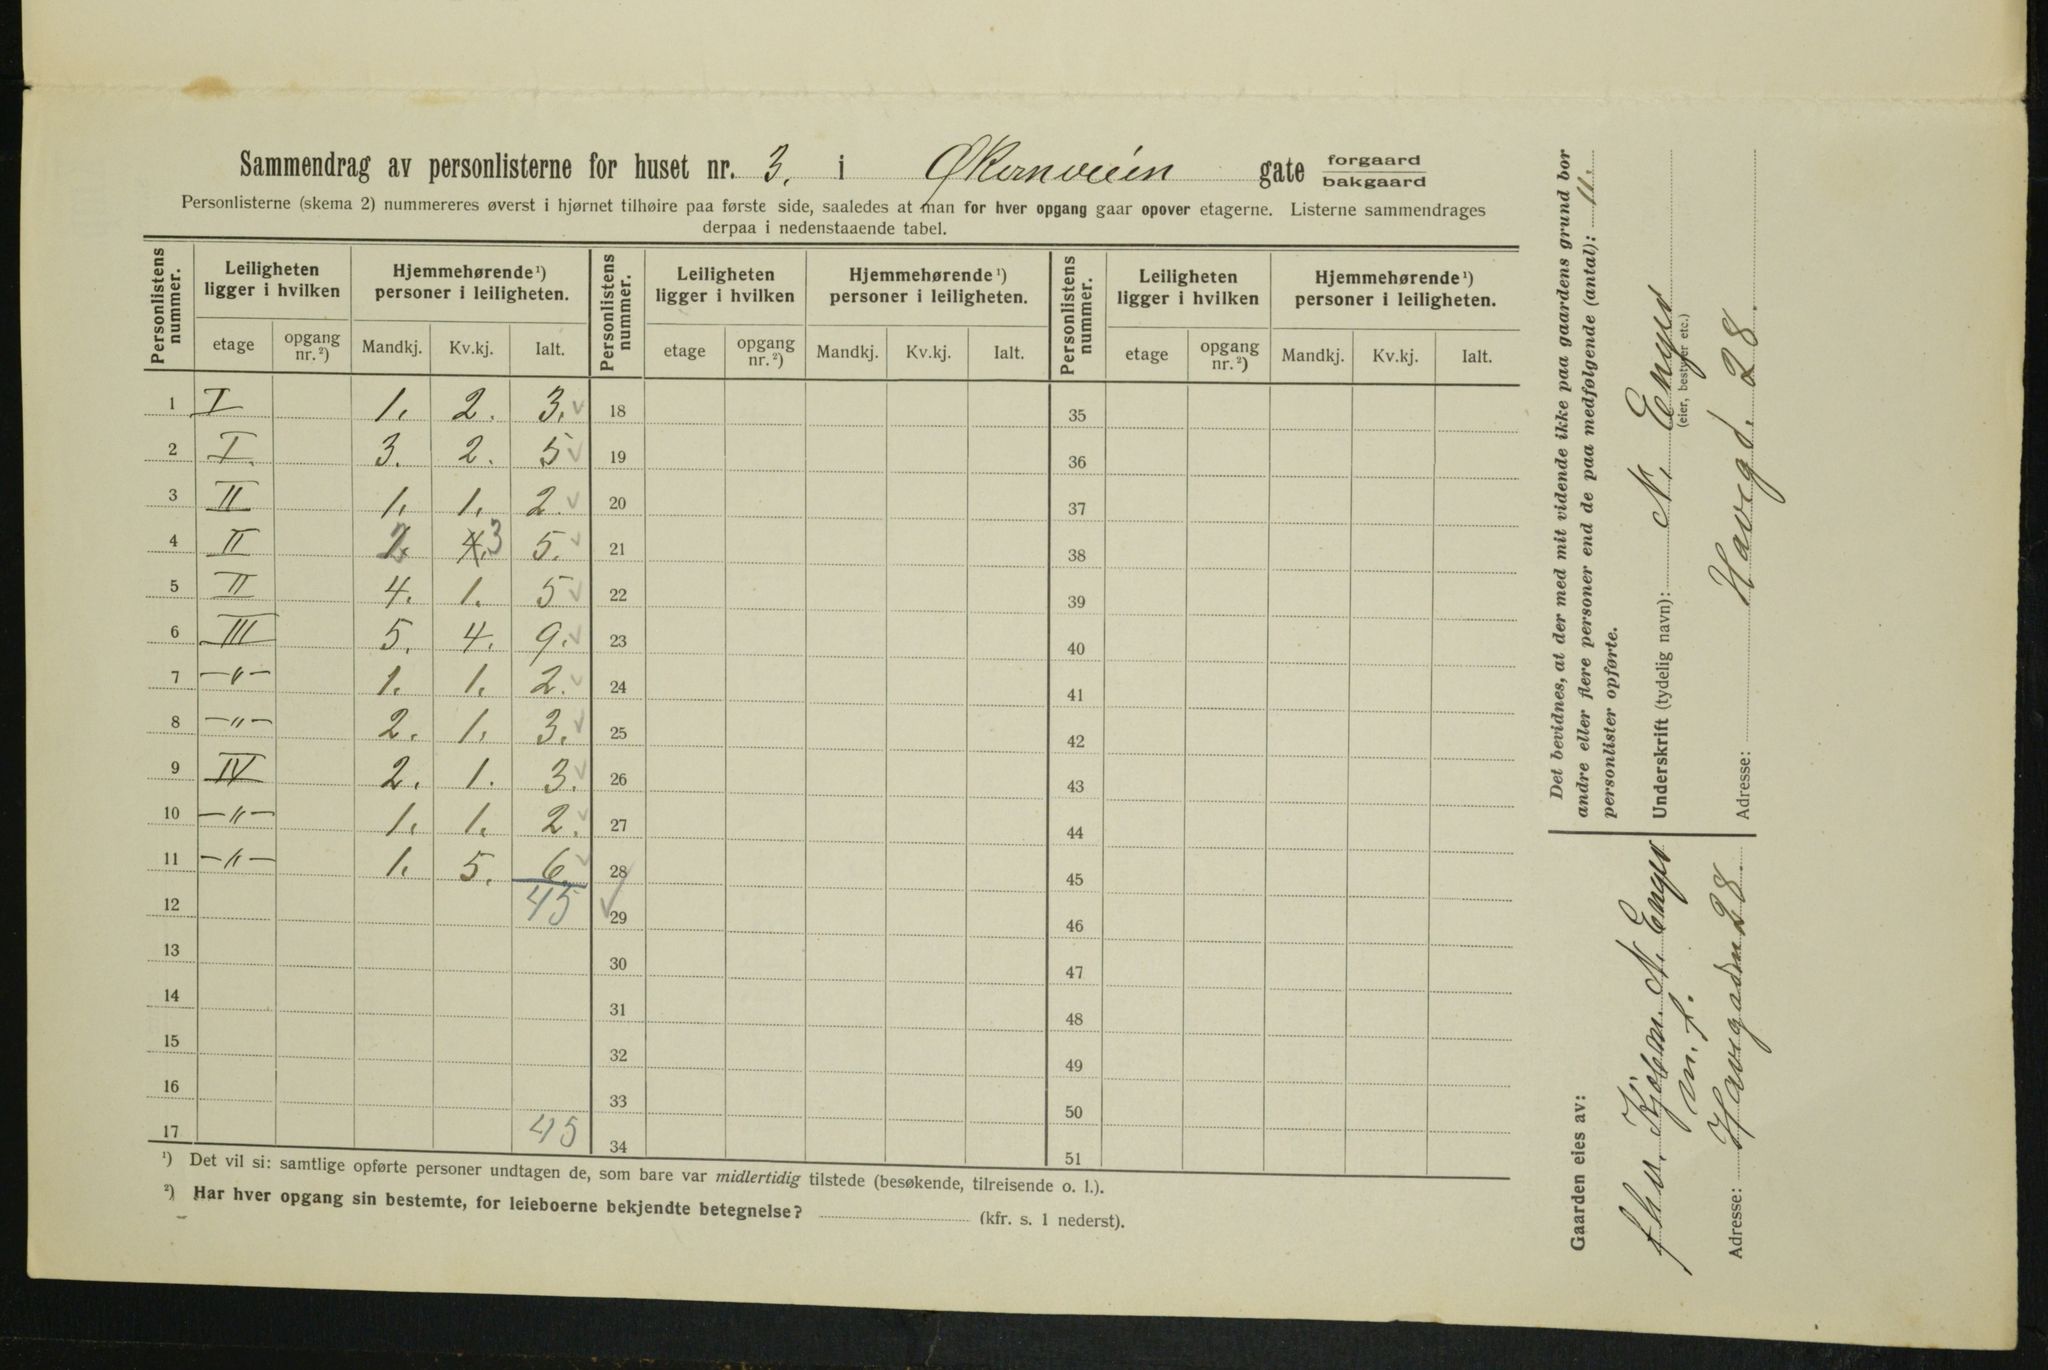 Sammendrag av personlisterne for huset nr. 3. i Økernveien gate forgaard
bakgaard
Personlisterne (skema 2) nummereres øverst i hjørnet tilhøire paa første side, saaledes at man for hver opgang gaar opover etagerne. Listerne sammendrages
derpaa i nedenstaaende tabel.
Personlistens nummer. Leiligheten ligger i hvilken Hjemmehørende ¹) personer i leiligheten. Personlistens nummer. Leiligheten ligger i hvilken Hjemmehørende ¹) personer i leiligheten. Personlistens nummer. Leiligheten ligger i hvilken Hjemmehørende ¹) personer i leiligheten.
etage opgang nr. ²) Mandkj. Kv.kj. Ialt. etage opgang nr. ²) Mandkj. Kv.kj. Ialt. etage opgang nr. ²) Mandkj. Kv.kj. Ialt.
1 I 1. 2. 3. ✓ 18 35
2 I. 3. 2. 5 ✓ 19 36
3 II 1. 1. 2. ✓ 20 37
4 II 2. 4. 3 5. ✓ 21 38
5 II 4. 1. 5 ✓ 22 39
6 III 5. 4. 9. ✓ 23 40
7 —"— 1. 1. 2. ✓ 24 41
8 —"— 2. 1. 3. ✓ 25 42
9 IV 2. 1. 3. ✓ 26 43
10 —"— 1. 1. 2. ✓ 27 44
11 —"— 1. 5. 6. ✓ 28 45
12 45 ✓ 29 46
13 30 47
14 31 48
15 32 49
16 33 50
17 45 34 51
¹) Det vil si: samtlige opførte personer undtagen de, som bare var midlertidig tilstede (besøkende, tilreisende o. l.).
²) Har hver opgang sin bestemte, for leieboerne bekjendte betegnelse? (kfr. s. 1 nederst).
Det bevidnes, at der med mit vidende ikke paa gaardens grund bor
andre eller flere personer end de paa medfølgende (antal): 11.
personlister opførte.
Underskrift (tydelig navn): N. Enger
(eier, bestyrer etc.)
Adresse: Havegd. 28.
Gaarden eies av:
N. Enger
m. f.
Adresse: Havegaden 28